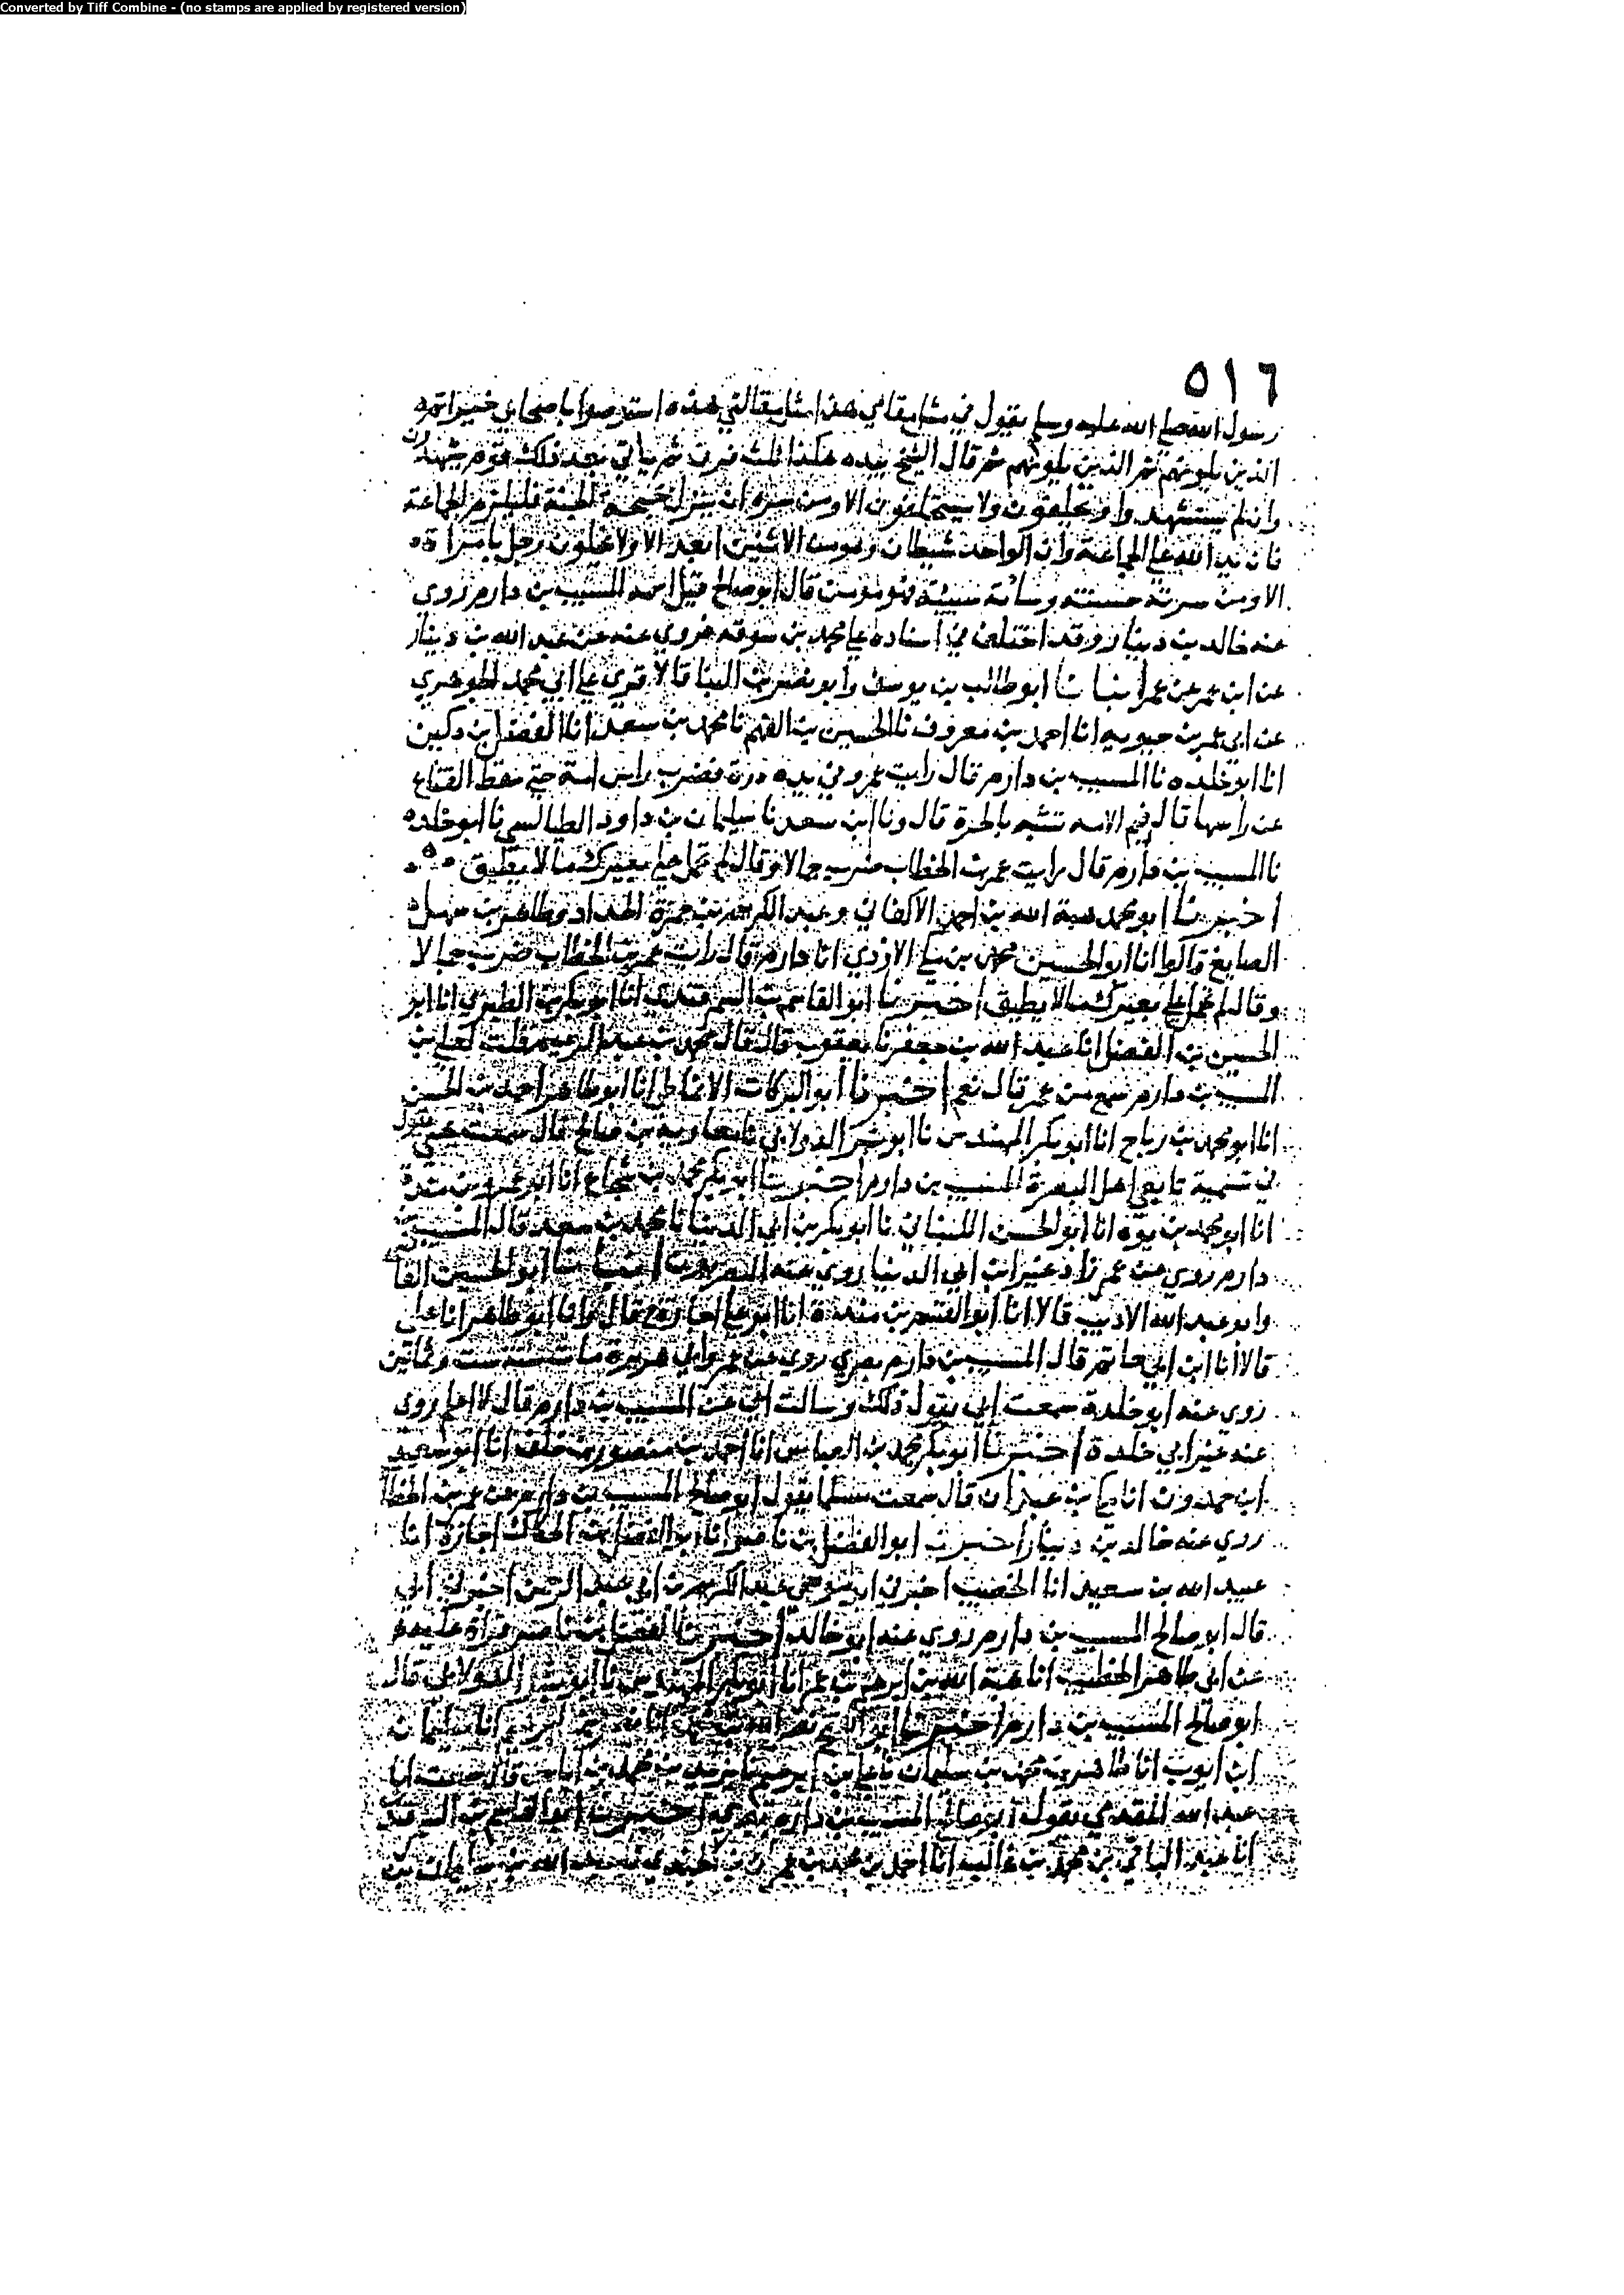 Converted by Tiff Combine - (no stamps are applied by registered version)
٥١٦
رسول الله صلى الله عليه وسلم يقول في مثل مقامي هذا مثل مقالتي هذه استوصوا باصحابي خيرا ثم
الذين يلونهم ثم الذين يلونهم ثم قال الشيخ بيده هكذا ثلث ثم ياتي بعد ذلك قوم يشهدون
وان لم يستشهدوا ويحلفون ولا يستحلفون الا ومن سره ان ينزل بحبحة الجنة فليلزم الجماعة
فان يد الله على الجماعة وان الواحد شيطان وهو من الاثنين ابعد الا ولا يخلون رجل بامراة
الا ومن سرته حسنته وساته سيئته فهو مؤمن قال ابو صالح قيل اسمه المسيب بن دارم روى
عنه خالد بن دينار وقد اختلف في اسناده على محمد بن سوقه فروي عنه عن عبد الله بن دينار
عن ابن عمر عن عمر انبانا ابو طالب بن يوسف وابو نصر بن البنا قالا قري على ابي محمد الجوهري
عن ابي عمر بن حيويه انا احمد بن معروف نا الحسين بن الفهم نا محمد بن سعد انا الفضل بن دكين
انا ابو خلده نا المسيب بن دارم قال رايت عمر وفي يده درة فضرب راس امة حتى سقط القناع
عن راسها قال فيم الامه تشبه بالحرة قال ونا ابن سعد نا سليمان بن داود الطيالسي نا ابو خلده
نا المسيب بن دارم قال رايت عمر بن الخطاب ضرب جمالا وقال لم تحمل على بعيرك ما لا يطيق
اخبرنا ابو محمد هبة الله بن احمد الاكفاني وعبد الكريم بن حمزة الحداد وطاهر بن سهل
الصايغ قالوا انا ابو الحسين محمد بن مكي الازدي انا دارم قال رايت عمر بن الخطاب ضرب جمالا
وقال لم تحمل على بعيرك ما لا يطيق اخبرنا ابو القاسم بن السمرقندي انا ابو بكر بن الطبري انا ابو
الحسين بن الفضل انا عبد الله بن جعفر نا يعقوب قال قال محمد بن عبد الرحيم قلت لعلي بن
المسيب بن دارم سمع من عمر قال نعم اخبرنا ابو البركات الانماطي انا ابو طاهر احمد بن الحسن
انا ابو محمد بن رباح انا ابو بكر المهندس نا ابو بشر الدولابي نا معاوية بن صالح قال سمعت يحيى يقول
في تسمية تابعي اهل البصرة المسيب بن دارم اخبرنا ابو بكر محمد بن شجاع انا ابو عمرو بن مندة
انا ابو محمد بن يوه انا ابو الحسن اللنباني نا ابو بكر بن ابي الدنيا نا محمد بن سعد قال المسيب بن
دارم روى عن عمر زاد غير ابن ابي الدنيا روى عنه البصريون انبانا ابو الحسين القاضي
وابو عبد الله الاديب قالا انا ابو القسم بن مندة انا ابو علي اجازة ح قال وانا ابو طاهر انا علي
قالا انا ابن ابي حاتم قال المسيب بن دارم بصري روى عن عمر وابي هريرة مات سنة ست وثمانين
روى عنه ابو خلدة سمعت ابي يقول ذلك وسالت ابي عن المسيب بن دارم قال لا اعلم روى
عنه غير ابي خلدة اخبرنا ابو بكر محمد بن العباس انا احمد بن منصور بن خلف انا ابو سعيد
ابن حمدون انا مكي بن عبدان قال سمعت مسلما يقول ابو صالح المسيب بن دارم عن عمر بن الخطاب
روى عنه خالد بن دينار اخبرنا ابو الفضل بن ناصر انا ابو الفضل بن الحكاك اجازة انا
عبيد الله بن سعيد انا الخصيب اخبرني ابو موسى عبد الكريم بن ابي عبد الرحمن اخبرني ابي
قال ابو صالح المسيب بن دارم روى عنه ابو خالد اخبرنا ابو الفضل بن ناصر قراة عليه
عن ابي طاهر الخطيب انا هبة الله بن ابرهيم بن عمر انا ابو بكر المهندس نا ابو بشر الدولابي قال
ابو صالح المسيب بن دارم اخبرنا ابو الفتح نصر الله بن محمد انا نصر بن ابرهيم انا سليمان
ابن ايوب انا طاهر بن محمد بن سليمان نا علي بن ابرهيم نا يزيد بن محمد بن اياس قال سمعت ابا
عبد الله المقدمي يقول ابو صالح المسيب بن دارم بصري اخبرنا ابو القاسم بن السمرقندي
انا عبد الباقي بن محمد بن غالب انا احمد بن محمد بن عمران بن الجندي نا عبد الله بن سليمان بن